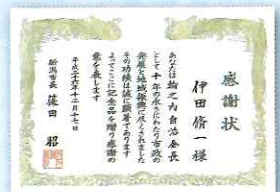 感謝状
伊田脩一様
あなたは輪之内自治会長
として十年の永きにわたり市政の
発展と地域振興に尽くされました
その功績は誠に顕著であります
よってここに記念品を贈り感謝の
意を表します
平成二十六年十二月十七日
新潟市長 篠田 昭